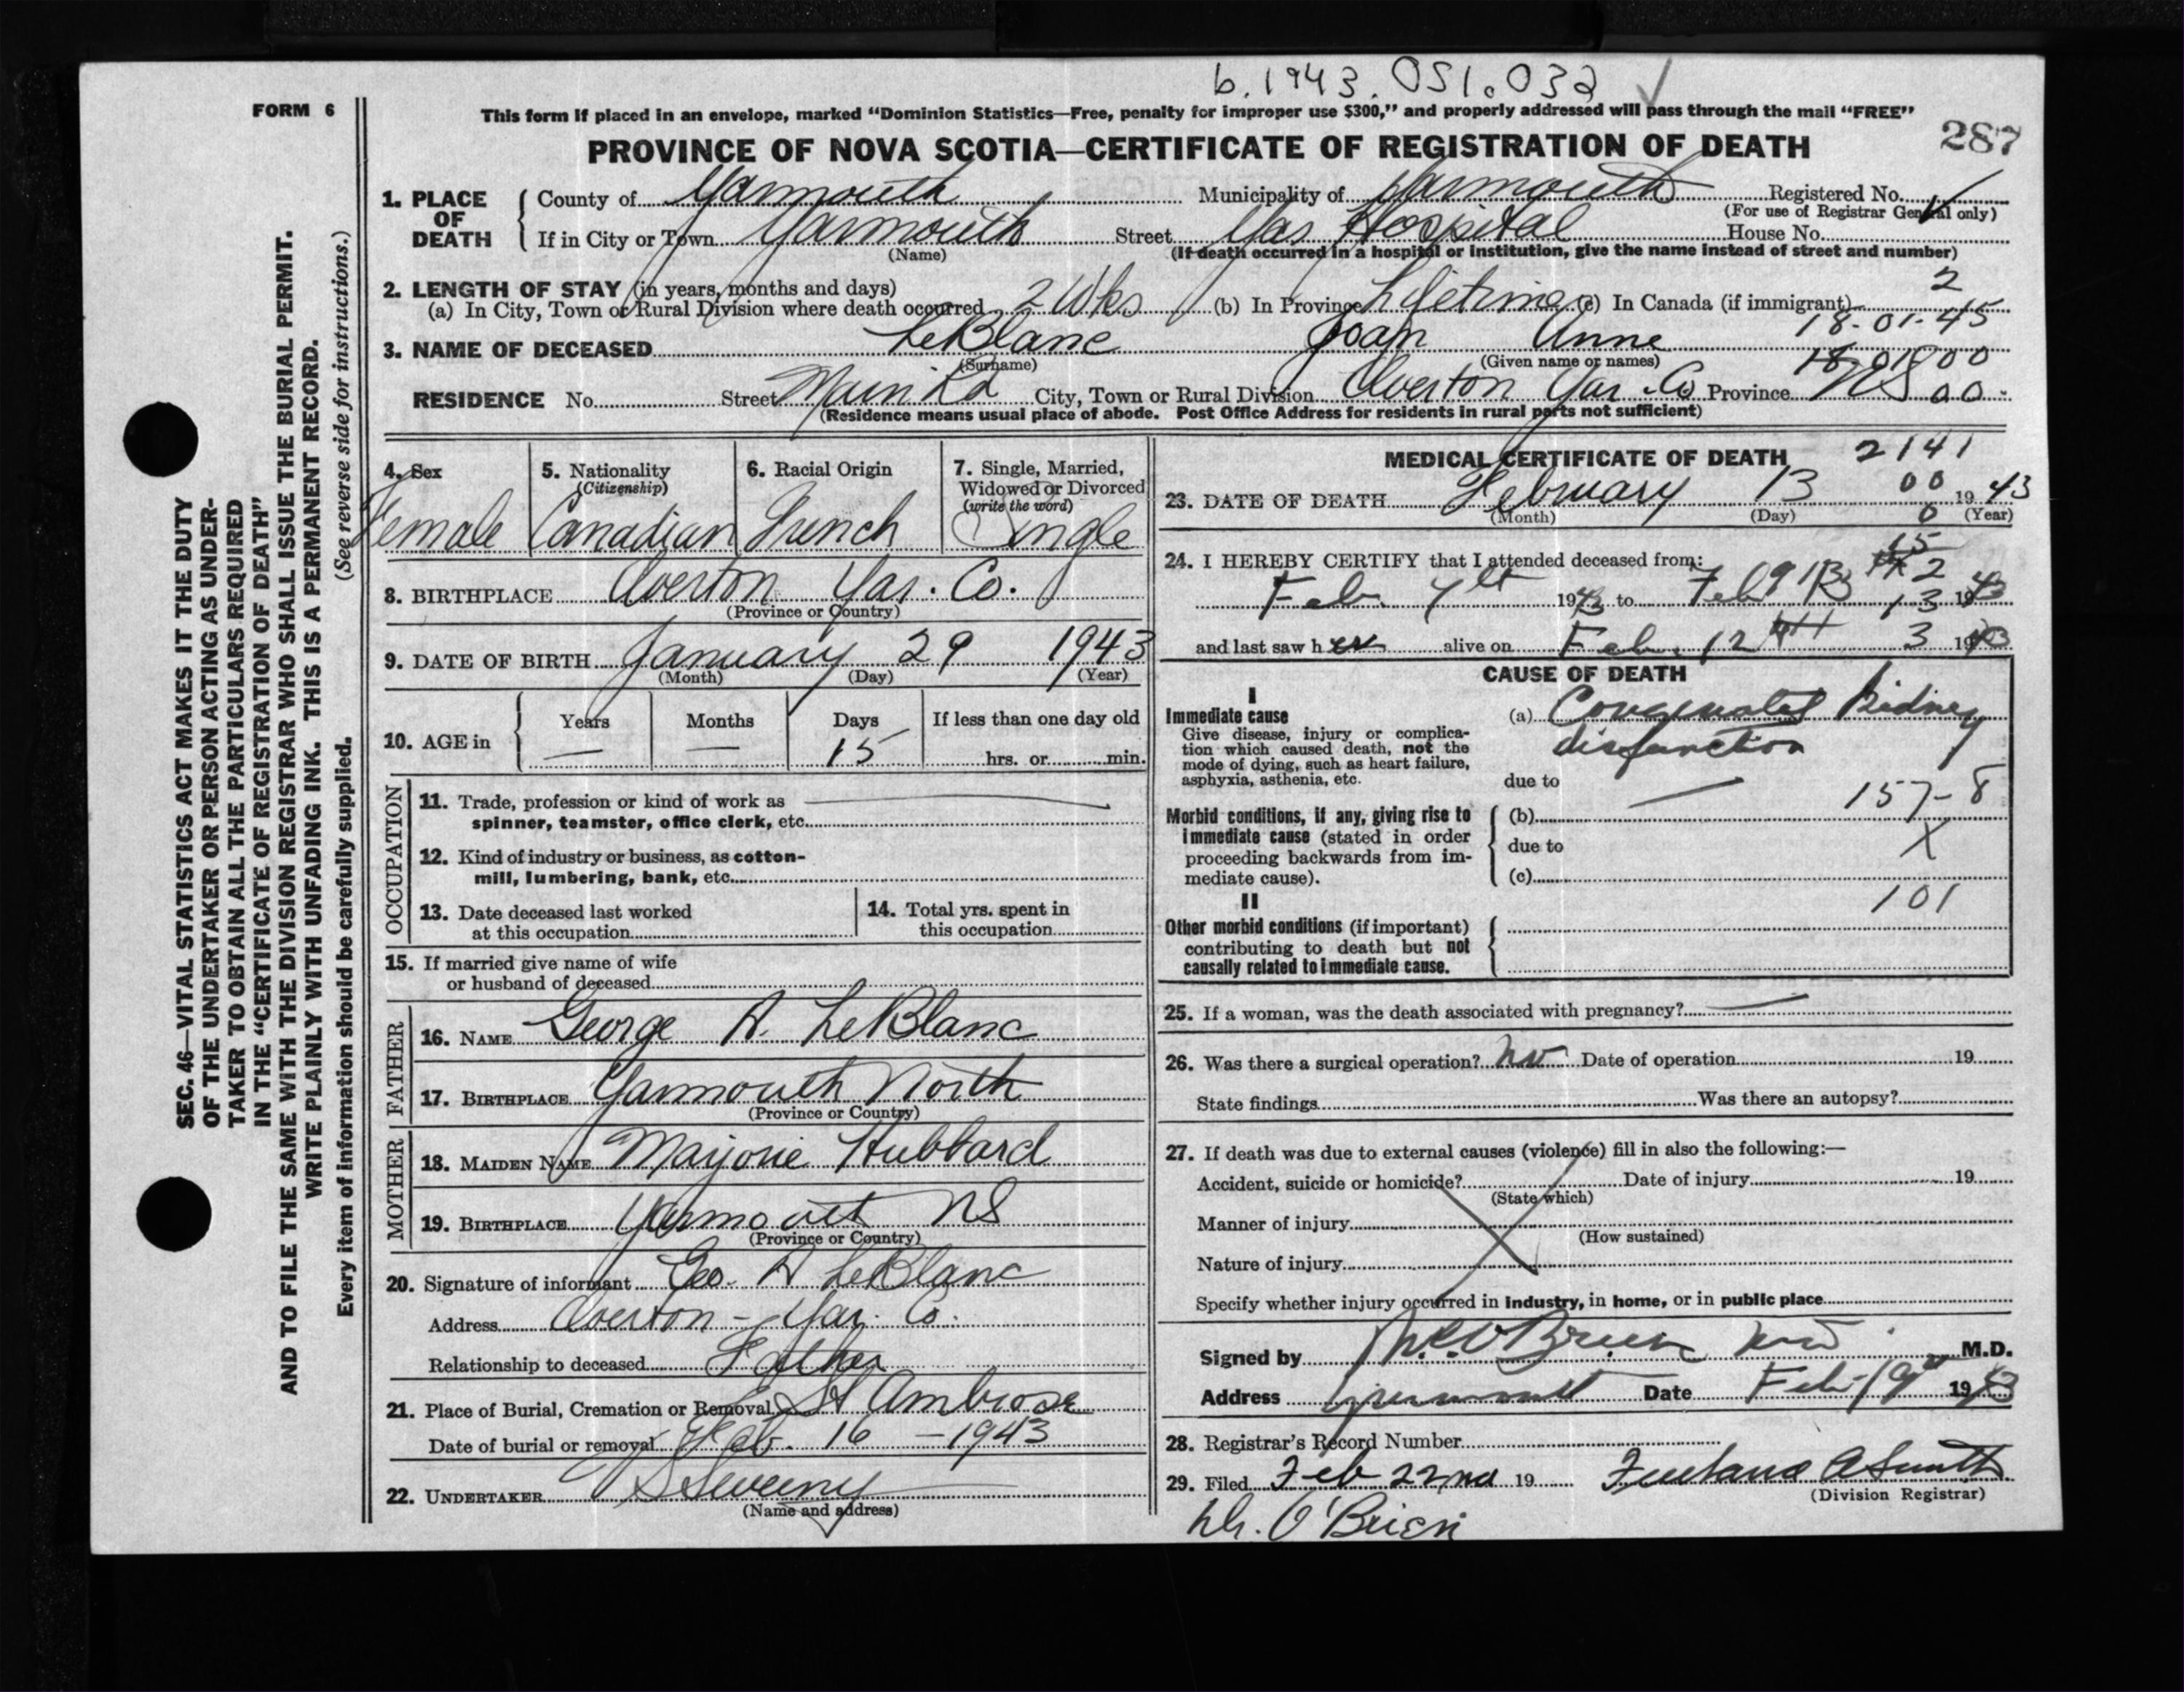 b.1943.051.032 ✓
FORM 6
This form if placed in an envelope, marked "Dominion Statistics—Free, penalty for improper use $300," and properly addressed will pass through the mail "FREE"
287
PROVINCE OF NOVA SCOTIA—CERTIFICATE OF REGISTRATION OF DEATH
1. PLACE OF DEATH
County of Yarmouth Municipality of Yarmouth Registered No.
(For use of Registrar General only)
If in City or Town Yarmouth Street Yar Hospital House No.
(Name) (If death occurred in a hospital or institution, give the name instead of street and number)
2. LENGTH OF STAY (in years, months and days) 2
(a) In City, Town or Rural Division where death occurred 2 Wks (b) In Province Lifetime (c) In Canada (if immigrant)
18-01-45
3. NAME OF DECEASED LeBlanc Joan Anne
(Surname) (Given name or names)
RESIDENCE No. Street Main Rd City, Town or Rural Division Overton Yar. Co Province NS 00
(Residence means usual place of abode. Post Office Address for residents in rural parts not sufficient)
4. Sex 5. Nationality (Citizenship) 6. Racial Origin 7. Single, Married, Widowed or Divorced (write the word)
Female Canadian French Single
8. BIRTHPLACE Overton Yar. Co.
(Province or Country)
9. DATE OF BIRTH January 29 1943
(Month) (Day) (Year)
10. AGE in Years Months Days If less than one day old
— — 15 hrs. or min.
OCCUPATION
11. Trade, profession or kind of work as
spinner, teamster, office clerk, etc.
12. Kind of industry or business, as cotton-
mill, lumbering, bank, etc.
13. Date deceased last worked at this occupation
14. Total yrs. spent in this occupation
15. If married give name of wife
or husband of deceased
FATHER
16. NAME George A. LeBlanc
17. BIRTHPLACE Yarmouth North
(Province or Country)
MOTHER
18. MAIDEN NAME Marjorie Hubbard
19. BIRTHPLACE Yarmouth NS
(Province or Country)
20. Signature of informant Geo. A LeBlanc
Address Overton - Yar. Co.
Relationship to deceased Father
21. Place of Burial, Cremation or Removal St Ambrose
Date of burial or removal Feb. 16 - 1943
22. UNDERTAKER Sweeny
(Name and address)
MEDICAL CERTIFICATE OF DEATH 2141
00
23. DATE OF DEATH February 13 1943
(Month) (Day) 0 (Year)
24. I HEREBY CERTIFY that I attended deceased from: 15
Feb. 1943 to Feb 13 1943
and last saw her alive on Feb. 12 3 1943
CAUSE OF DEATH
I
Immediate cause
Give disease, injury or complica-
tion which caused death, not the
mode of dying, such as heart failure,
asphyxia, asthenia, etc.
(a) Congenital Kidney
disfunction
due to —
157-8
Morbid conditions, if any, giving rise to
immediate cause (stated in order
proceeding backwards from im-
mediate cause).
(b)
due to X
(c)
101
II
Other morbid conditions (if important)
contributing to death but not
causally related to immediate cause.
25. If a woman, was the death associated with pregnancy? —
26. Was there a surgical operation? no Date of operation 19
State findings Was there an autopsy?
27. If death was due to external causes (violence) fill in also the following:—
Accident, suicide or homicide? Date of injury 19
(State which)
Manner of injury
(How sustained)
Nature of injury
Specify whether injury occurred in industry, in home, or in public place
Signed by O'Brien M.D.
Address Yarmouth Date Feb 19 1943
28. Registrar's Record Number
29. Filed Feb 22nd 19
(Division Registrar)
Dr. O'Brien
SEC. 46—VITAL STATISTICS ACT MAKES IT THE DUTY
OF THE UNDERTAKER OR PERSON ACTING AS UNDER-
TAKER TO OBTAIN ALL THE PARTICULARS REQUIRED
IN THE "CERTIFICATE OF REGISTRATION OF DEATH"
AND TO FILE THE SAME WITH THE DIVISION REGISTRAR WHO SHALL ISSUE THE BURIAL PERMIT.
WRITE PLAINLY WITH UNFADING INK. THIS IS A PERMANENT RECORD.
Every item of information should be carefully supplied. (See reverse side for instructions.)